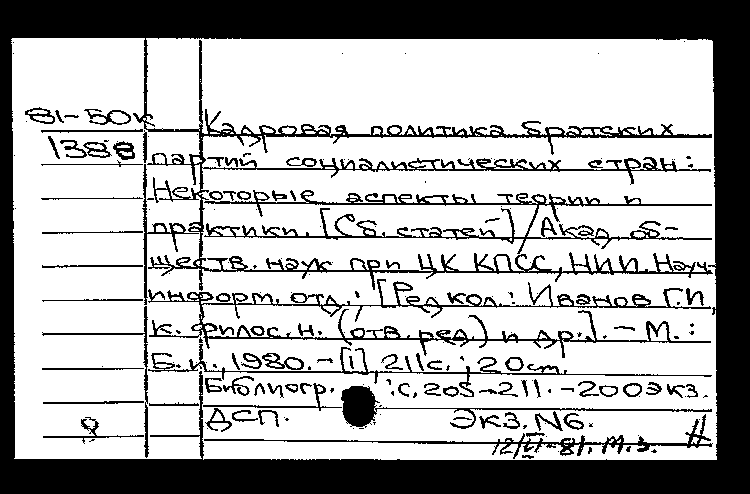 81-50к
1388
Кадровая политика братских
партий социалистических стран:
Некоторые аспекты теории и
практики. [Сб. статей] / Акад. об-
ществ. наук при ЦК КПСС, НИИ. Науч.-
информ. отд.: [Редкол.: Иванов Г.И.
к. филос. н. (отв. ред.) и др.]. - М.:
Б.и., 1980. - [1], 211с.; 20cm.
Библиогр.: с. 205-211. - 200экз.
ДСП. Экз. N6.
12/VI-81. М.З.